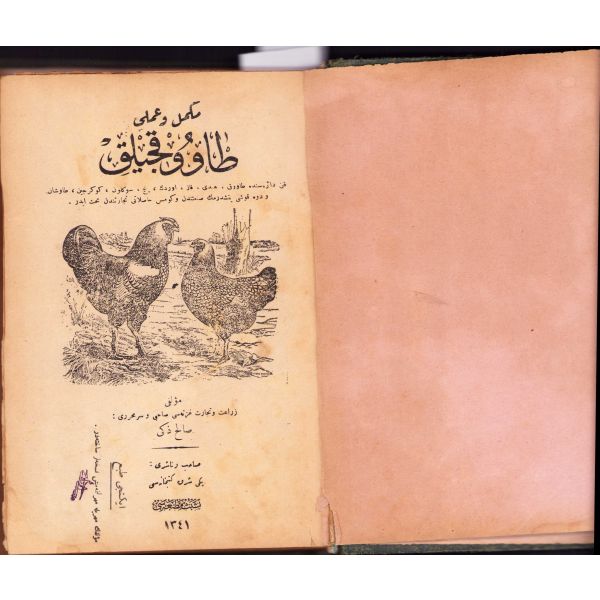 مكمل و عملی
طاووقجیلق
فن دائره‌سنده طاووق ، هندی ، قاز ، اوردك ، بچ ، سوكلون ، كوكرجین ، طاوشان
و دوه قوشی یتشدیرمك صنعتندن و كومس حاصلاتی تجارتندن بحث ایدر .
مؤلفی
زراعت و تجارت غزته‌سی صاحبی و سرمحرری :
صالح ذكی
صاحب و ناشری :
یكی شرق كتبخانه‌سی
١٣٤١
ایكنجی طبع